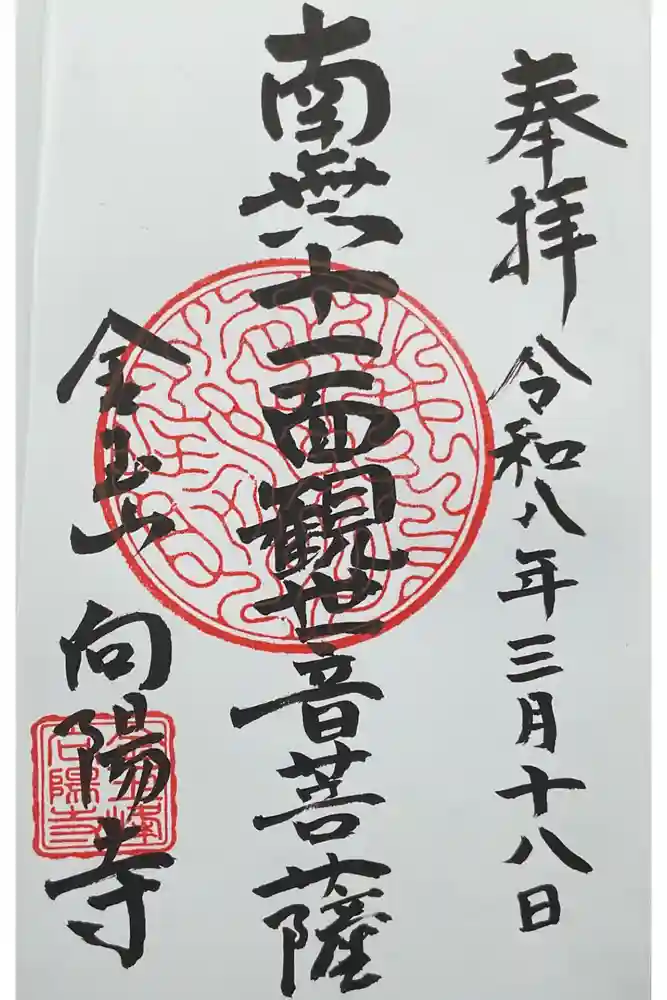 奉拝 令和八年三月十八日
南無十一面観世音菩薩
金玉山 向陽寺